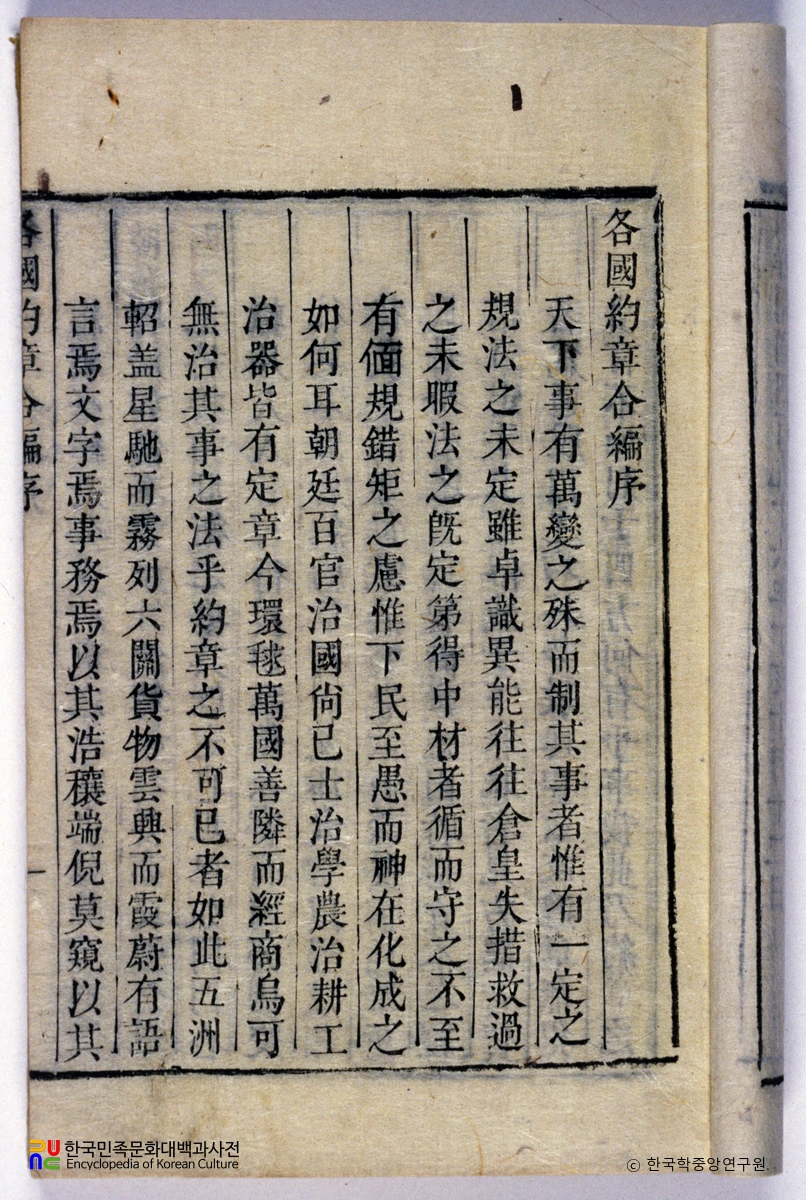 各國約章合編序
天下事有萬變之殊而制其事者惟有一定之
規法之未定雖卓識異能往往倉皇失措救過
之未暇法之旣定第得中材者循而守之不至
有偭規錯矩之慮惟下民至愚而神在化成之
如何耳朝廷百官治國尙已士治學農治耕工
治器皆有定章今環毬萬國善隣而經商烏可
無治其事之法乎約章之不可已者如此五洲
軺盖星馳而霧列六關貨物雲興而霞蔚有語
言焉文字焉事務焉以其浩穰端倪莫窺以其
各國約章合編序
一
한국민족문화대백과사전
Encyclopedia of Korean Culture
© 한국학중앙연구원